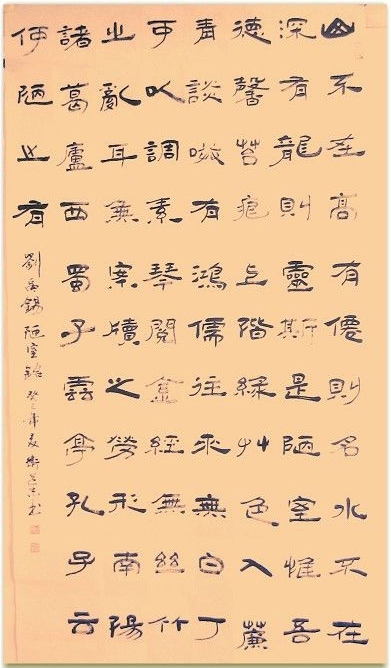 山不在高有僊則名水不在
深有龍則靈斯是陋室惟吾
德馨苔痕上階綠艸色入簾
青談咲有鴻儒往來無白丁
可以調素琴閱金經無絲竹
之亂耳無案牘之勞形南陽
諸葛廬西蜀子雲亭孔子云
何陋之有
劉禹錫陋室銘